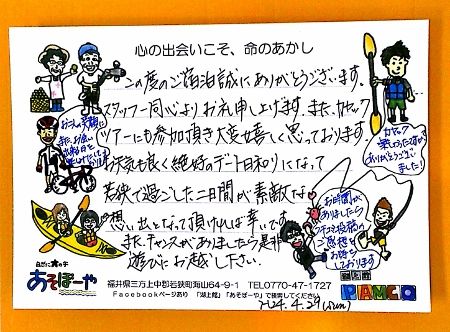 心の出会いこそ、命のあかし
この度のご宿泊誠にありがとうございます。
スタッフ一同心よりお礼申し上げます。また、カヤック
ツアーにも参加頂き大変嬉しく思っております。
お天気も良く絶好のデート日和になって
若狭で過ごした二日間が素敵な
想い出となって頂ければ幸いです。
また、チャンスがありましたら是非
遊びにお越し下さい。
カヤック
ありがとうござい
ました!
お時間が
ありましたら
クチコミ投稿の
ご感想を
お待ち
しております
自然に
あそぼーや
湖上館
PAMCO
福井県三方上中郡若狭町海山64-9-1 TEL0770-47-1727
Facebookページあり 「湖上館」「あそぼーや」で検索してください
2024.4.29